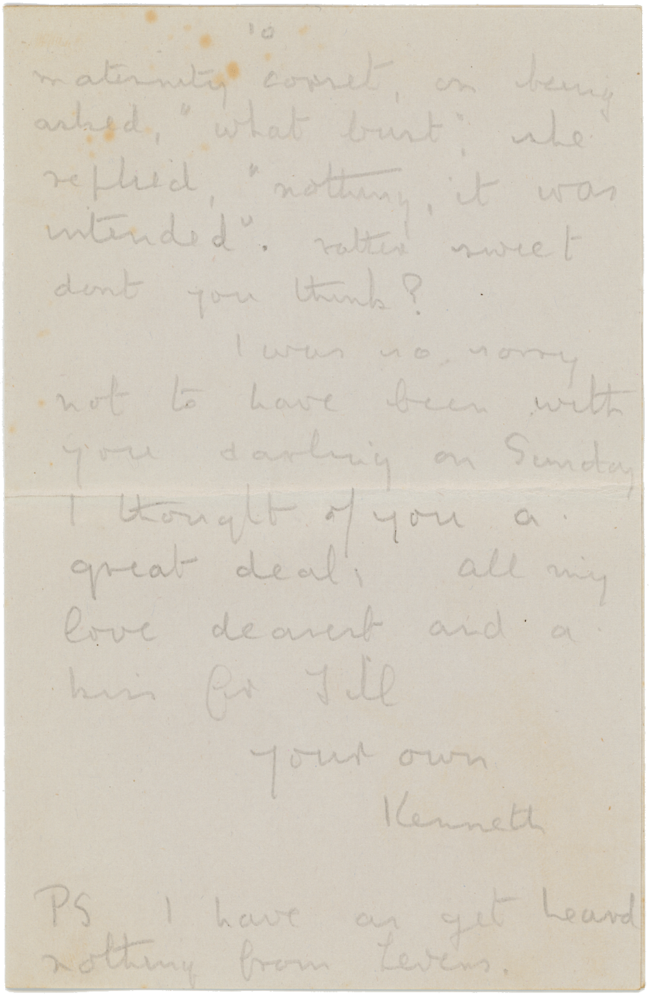 10
maternity corset, on being
asked, "what burst", she
replied, "nothing, it was
intended". rather sweet
dont you think?
I was so sorry
not to have been with
you darling on Sunday
I thought of you a
great deal; all my
love dearest and a
kiss for Jill
your own
Kenneth
PS I have as yet heard
nothing from Levens.